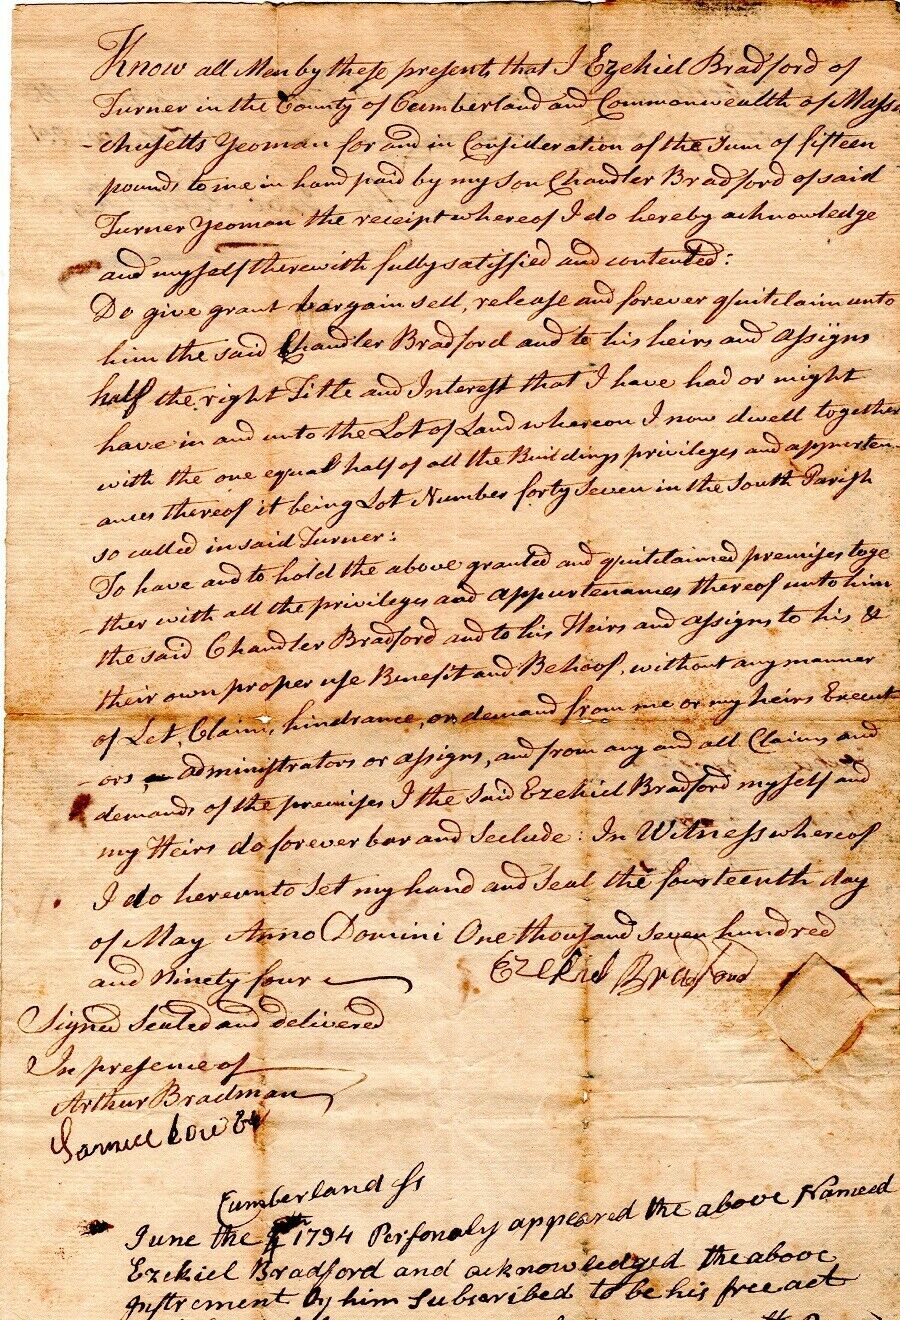 Know all Men by these presents that I Ezekiel Bradford of
Turner in the County of Cumberland and Commonwealth of Massa
-chusetts Yeoman for and in Consideration of the Sum of fifteen
pounds to me in hand paid by my son Chandler Bradford of said
Turner Yeoman the receipt whereof I do hereby acknowledge
and myself therewith fully satisfied and contented:
Do give grant bargain sell, release and forever quitclaim unto
him the said Chandler Bradford and to his heirs and assigns
half the right Title and Interest that I have had or might
have in and unto the Lot of Land whereon I now dwell together
with the one equal half of all the Buildings privileges and apperten-
ances thereof it being Lot Number forty seven in the South Parish
so called in said Turner:
To have and to hold the above granted and quitclaimed premises toge
-ther with all the privileges and appurtenances thereof unto him
the said Chandler Bradford and to his Heirs and assigns to his &
their own proper use Benefit and Behoof, without any manner
of Let, Claim, hindrance, or demand from me or my heirs Execut
-ors administrators or assigns, and from any and all Claims and
demands of the premises I the said Ezekiel Bradford myself and
my Heirs do forever bar and seclude: In Witness whereof
I do hereunto set my hand and seal the fourteenth day
of May Anno Domini One thousand seven hundred
and Ninety four
Ezekiel Bradford
Signed Sealed and delivered
In presence of
Arthur Bradman
Samuel
Cumberland ss
June the 1794 Personaly appeared the above Named
Ezekiel Bradford and acknowledged the above
Instrement by him subscribed to be his free act